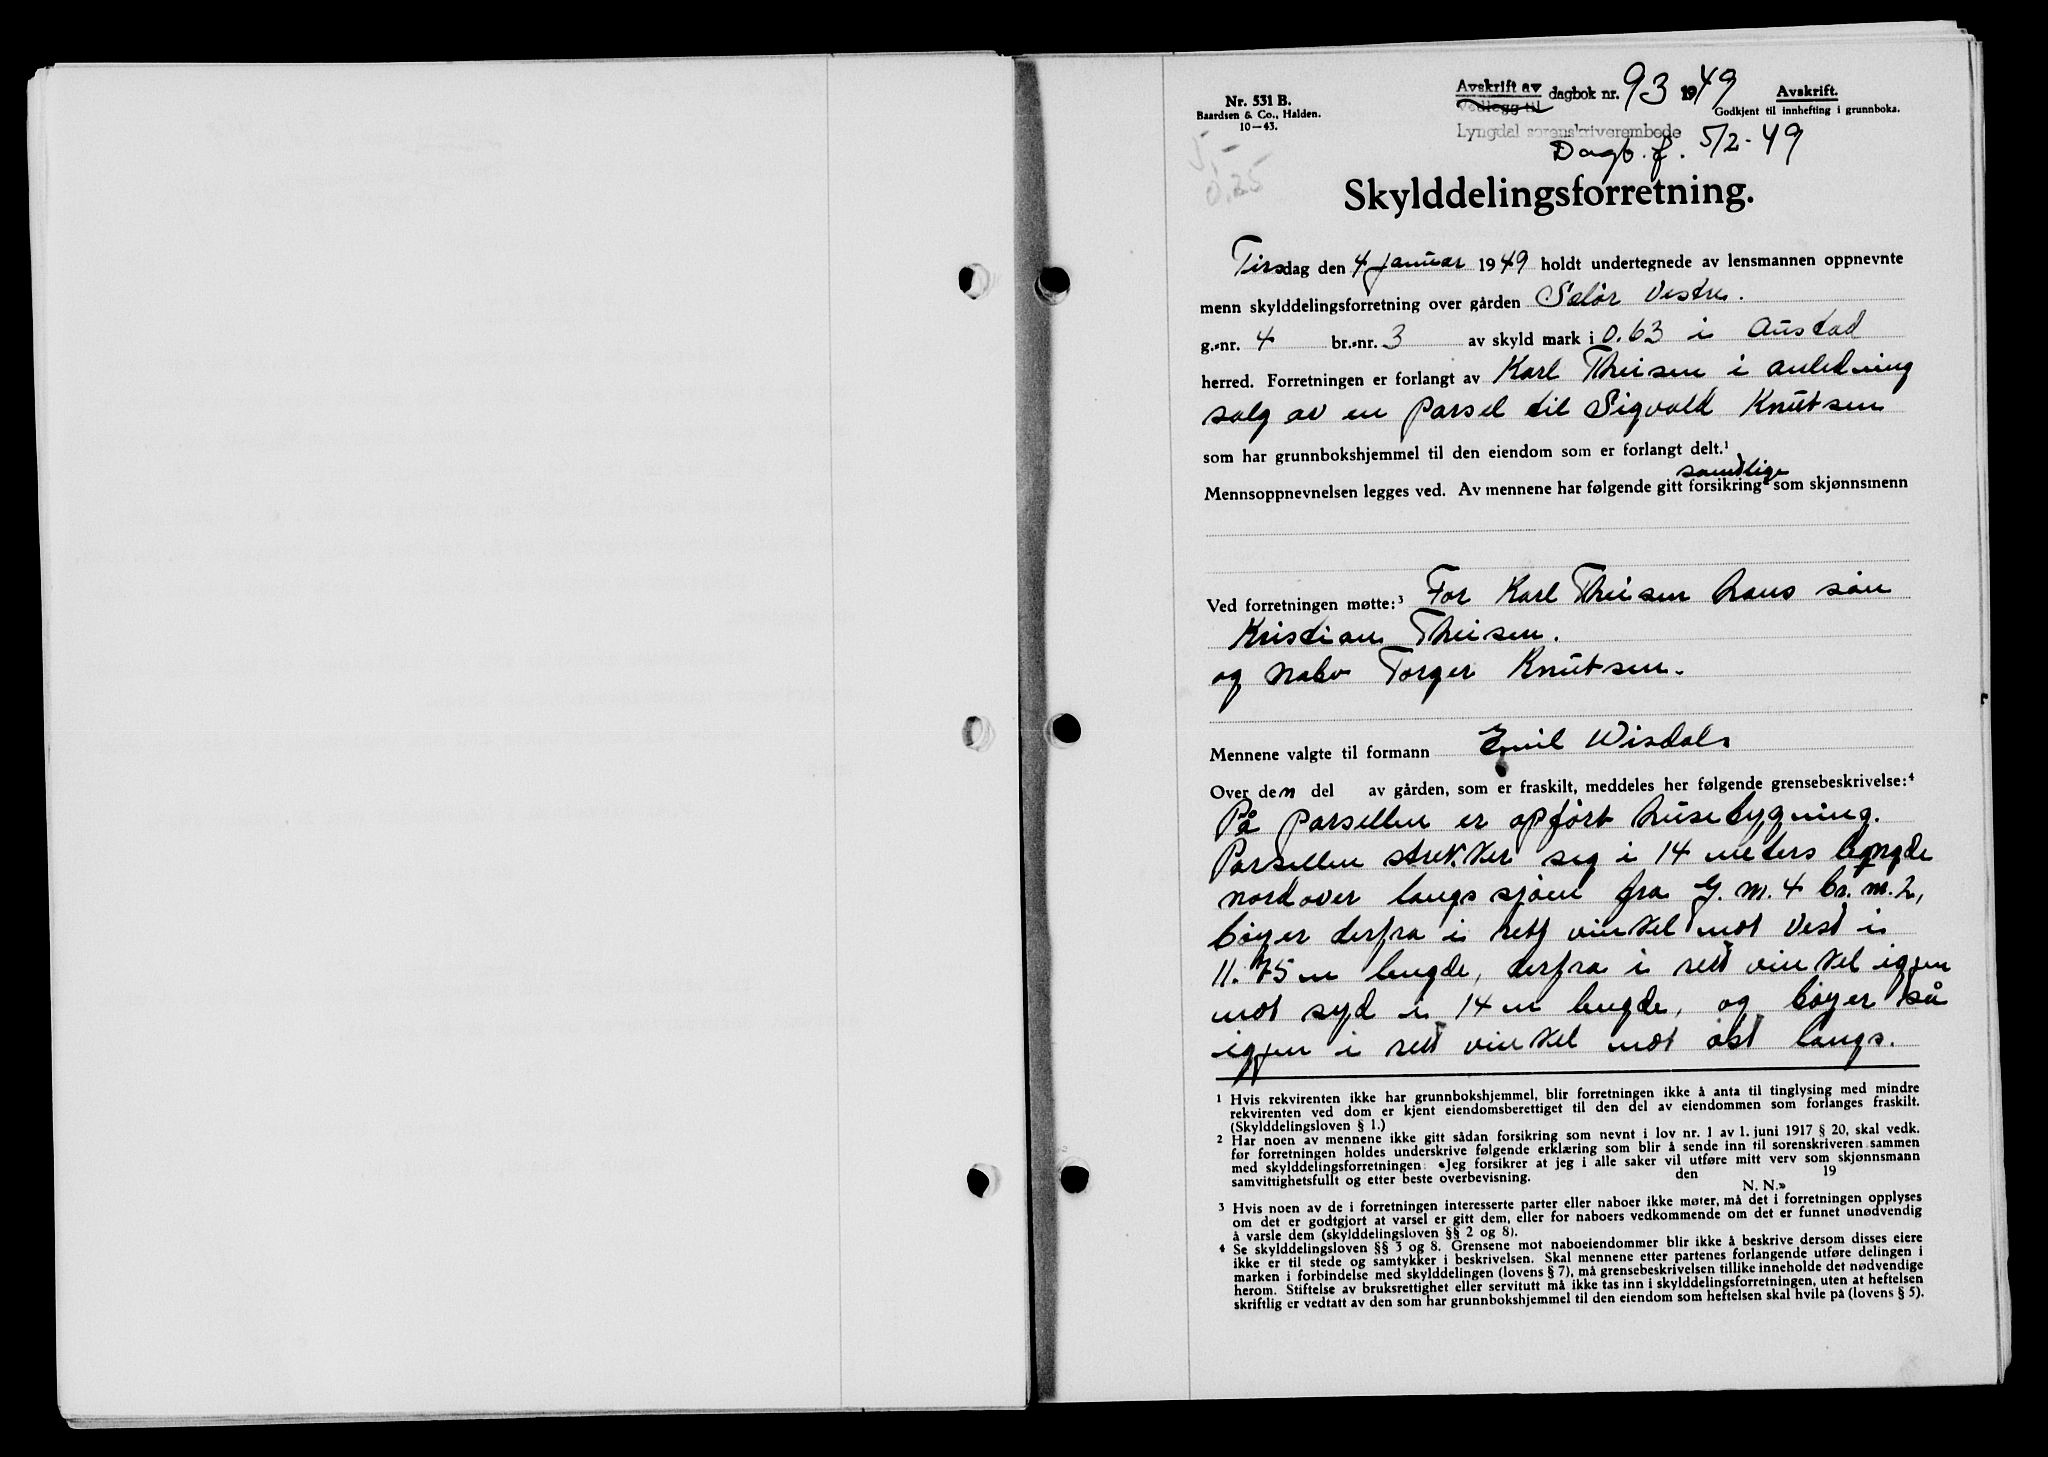 Nr. 531 B.
Baardsen & Co., Halden.
10—43.
Avskrift av
vedlegg til
dagbok nr. 93 1949
Avskrift.
Godkjent til innhefting i grunnboka.
Lyngdal sorenskriverembede
Dagb. f. 5/2-49
5,-
0.25
Skylddelingsforretning.
Tirsdag den 4 januar 1949 holdt undertegnede av lensmannen oppnevnte
menn skylddelingsforretning over gården Selør Vestre.
g.-nr. 4 br.-nr. 3 av skyld mark i 0.63 i Austad
herred. Forretningen er forlangt av Karl Theisen i anledning
salg av en parsel til Sigvald Knutsen
som har grunnbokshjemmel til den eiendom som er forlangt delt.¹
samtlige
Mennsoppnevnelsen legges ved. Av mennene har følgende gitt forsikring² som skjønnsmenn
Ved forretningen møtte:³ For Karl Theisen hans søn
Kristian Theisen.
og nabo Torger Knutsen.
Mennene valgte til formann Emil Wisdals
Over den del av gården, som er fraskilt, meddeles her følgende grensebeskrivelse:⁴
På parsellen er opført husebygning.
Parsellen strekker seg i 14 meters lengde
nordover langs sjøen fra G. nr. 4 br. nr. 2,
bøyer derfra i rett vinkel mot Vest i
11.75 m lengde, derfra i rett vinkel igjen
mot syd i 14 m lengde, og bøyer så
igjen i rett vinkel mot øst langs.
¹ Hvis rekvirenten ikke har grunnbokshjemmel, blir forretningen ikke å anta til tinglysing med mindre
rekvirenten ved dom er kjent eiendomsberettiget til den del av eiendommen som forlanges fraskilt.
(Skylddelingsloven § 1.)
² Har noen av mennene ikke gitt sådan forsikring som nevnt i lov nr. 1 av 1. juni 1917 § 20, skal vedk.
før forretningen holdes underskrive følgende erklæring som blir å sende inn til sorenskriveren sammen
med skylddelingsforretningen: «Jeg forsikrer at jeg i alle saker vil utføre mitt verv som skjønnsmann
samvittighetsfullt og etter beste overbevisning. den 19
N. N.»
³ Hvis noen av de i forretningen interesserte parter eller naboer ikke møter, må det i forretningen opplyses
om det er godtgjort at varsel er gitt dem, eller for naboers vedkommende om det er funnet unødvendig
å varsle dem (skylddelingsloven §§ 2 og 8).
⁴ Se skylddelingsloven §§ 3 og 8. Grensene mot naboeiendommer blir ikke å beskrive dersom disses eiere
ikke er til stede og samtykker i beskrivelsen. Skal mennene etter partenes forlangende utføre delingen i
marken i forbindelse med skylddelingen (lovens § 7), må grensebeskrivelsen tillike inneholde det nødvendige
herom. Stiftelse av bruksrettighet eller servitutt må ikke tas inn i skylddelingsforretningen, uten at heftelsen
skriftlig er vedtatt av den som har grunnbokshjemmel til den eiendom som heftelsen skal hvile på (lovens § 5).